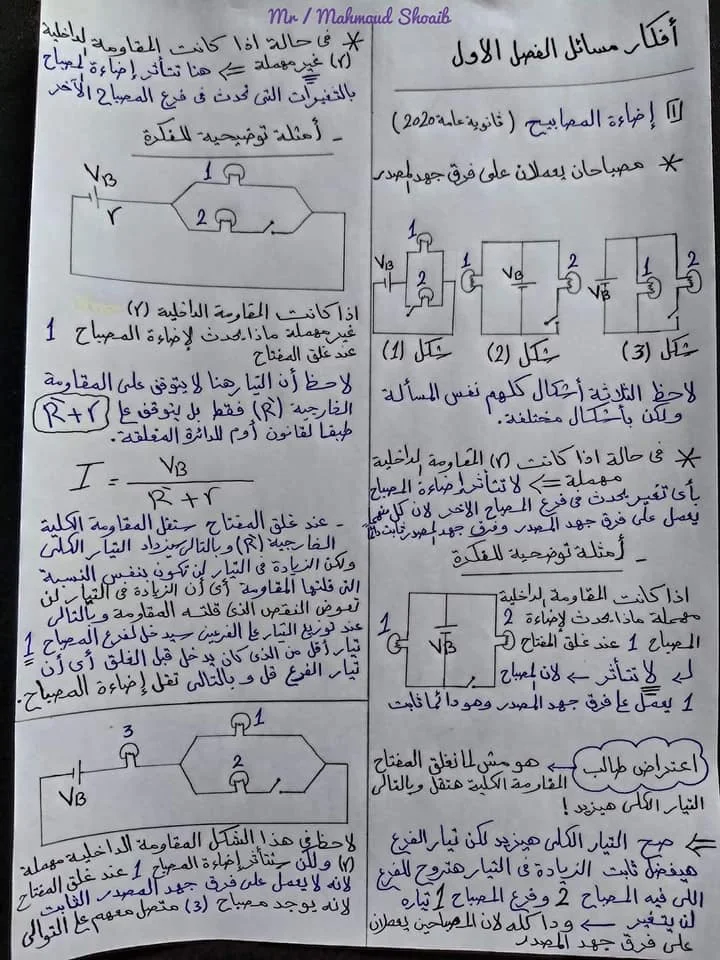 Mr / Mahmoud Shoaib
أفكار مسائل الفصل الأول
1 إضاءة المصابيح (ثانوية عامة 2020)
* مصباحان يعملان على فرق جهد المصدر
1
VB
2
شكل (1)
1
VB
2
شكل (2)
VB
1
2
شكل (3)
لاحظ الثلاثة أشكال كلهم نفس المسألة
ولكن بأشكال مختلفة.
* فى حالة اذا كانت (r) المقاومة الداخلية
مهملة <= لا تتأثر إضاءة المصباح
بأى تغير يحدث فى فرع المصباح الآخر لان كل منهم
يعمل على فرق جهد المصدر وفرق جهد المصدر ثابت
- أمثلة توضيحية للفكرة
اذا كانت المقاومة الداخلية
مهملة ماذا يحدث لإضاءة
المصباح 1 عند غلق المفتاح
1
VB
2
لا تتأثر ← لان المصباح
1 يعمل على فرق جهد المصدر وهو دائما ثابت
اعتراض طالب ← هو مش لما نغلق المفتاح
المقاومة الكلية هتقل وبالتالى
التيار الكلى هيزيد!
<= صح التيار الكلى هيزيد لكن تيار الفرع
هيفضل ثابت الزيادة فى التيار هتروح للفرع
اللى فيه المصباح 2 وفرع المصباح 1 تياره
لن يتغير ← ودا كله لان المصباحين يعملان
على فرق جهد المصدر
* فى حالة اذا كانت المقاومة الداخلية
(r) غير مهملة <= هنا تتأثر إضاءة المصباح
بالتغيرات التى تحدث فى فرع المصباح الآخر
- أمثلة توضيحية للفكرة
VB
r
1
2
اذا كانت المقاومة الداخلية (r)
غير مهملة ماذا يحدث لإضاءة المصباح 1
عند غلق المفتاح
لاحظ أن التيار هنا لا يتوقف على المقاومة
الخارجية (R) فقط بل يتوقف على R+r
طبقا لقانون أوم للدائرة المغلقة.
I = VB / R + r
- عند غلق المفتاح ستقل المقاومة الكلية
الخارجية (R) وبالتالى سيزداد التيار الكلى
ولكن الزيادة فى التيار لن تكون بنفس النسبة
التى قلتها المقاومة أى أن الزيادة فى التيار لن
تعوض النقص الذى قلته المقاومة وبالتالى
عند توزيع التيار على الفرعين سيدخل لفرع المصباح 1
تيار أقل من الذى كان يدخل قبل الغلق أى أن
تيار الفرع قل وبالتالى تقل إضاءة المصباح.
VB
3
1
2
لاحظ فى هذا الشكل المقاومة الداخلية مهملة
(r) ولكن ستتأثر إضاءة المصباح 1 عند غلق المفتاح
لانه لا يعمل على فرق جهد المصدر الثابت
لانه يوجد مصباح (3) متصل معهم على التوالى